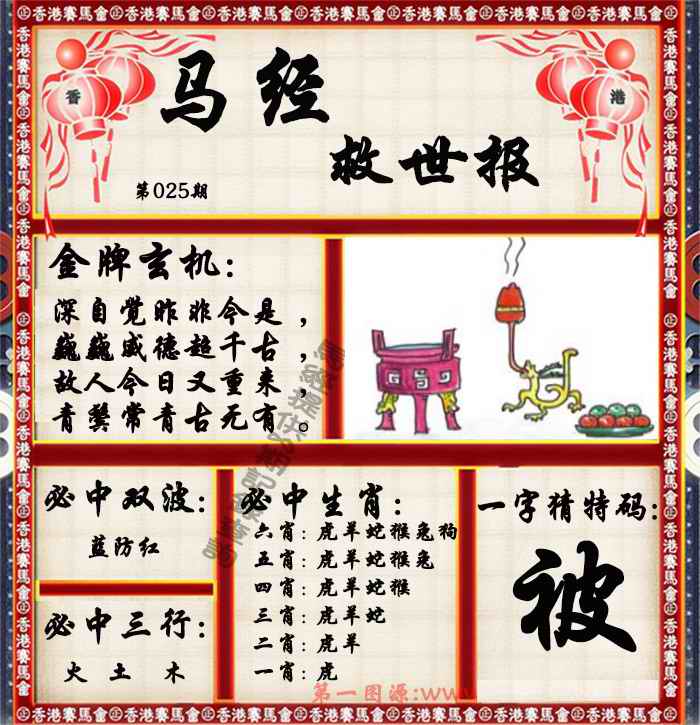 香港賽馬會
香 港
马经
救世报
第025期
金牌玄机:
深自覺昨非今是，
巍巍威德超千古，
故人今日又重来，
青鬓常青古无有。
必中双波:
蓝防红
必中三行:
火 土 木
必中生肖:
六肖: 虎羊蛇猴兔狗
五肖: 虎羊蛇猴兔
四肖: 虎羊蛇猴
三肖: 虎羊蛇
二肖: 虎羊
一肖: 虎
一字猜特码:
被
第一图源:www